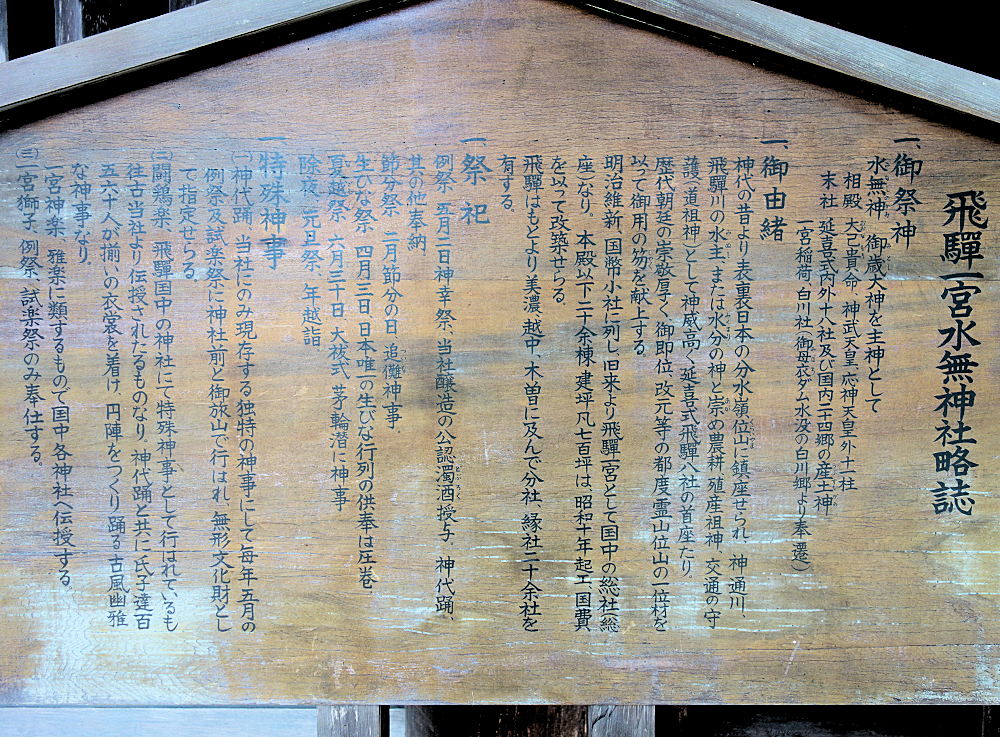 飛驒一宮水無神社略誌
一、御祭神
水無神、御歳大神を主神として
相殿 大己貴命、神武天皇、応神天皇外十一柱
末社 延喜式内外十八社及び国内二十四郷の産土神
一宮稲荷、白川社(御母衣ダム水没の白川郷より奉遷)
一、御由緒
神代の昔より表裏日本の分水嶺位山に鎮座せられ、神通川、
飛驒川の水主、または水分の神と崇め農耕、殖産祖神、交通の守
護(道祖神)として神威高く延喜式飛驒八社の首座たり。
歴代朝廷の崇敬厚く御即位、改元等の都度霊山位山の一位材を
以って御用の笏を献上する。
明治維新、国幣小社に列し、旧来より飛驒一宮として国中の総社(総
座)なり。本殿以下二十余棟、建坪凡七百坪は、昭和十年起工、国費
を以って改築せらる。
飛驒はもとより美濃、越中、木曽に及んで分社、縁社二十余社を
有する。
一、祭祀
例祭 五月二日神幸祭、当社醸造の公認濁酒授与、神代踊、
其の他奉納、
節分祭、二月節分の日 追儺神事
生びな祭、四月三日、日本唯一の生びな行列の供奉は圧巻
夏越祭、六月三十日 大祓式、茅輪潜に神事
除夜、元旦祭、年越詣
一、特殊神事
(一)神代踊、当社にのみ現存する独特の神事にして毎年五月の
例祭及試楽祭に神社前と御旅山で行はれ、無形文化財とし
て指定せらる。
(二)闘鶏楽、飛驒国中の神社にて特殊神事として行はれているも
往古当社より伝授されたるものなり。神代踊と共に氏子達百
五六十人が揃いの衣裳を着け、円陣をつくり踊る古風幽雅
な神事なり。
一宮神楽、雅楽に類するもので国中各神社へ伝授する。
(三)宮獅子、例祭、試楽祭のみ奉仕する。